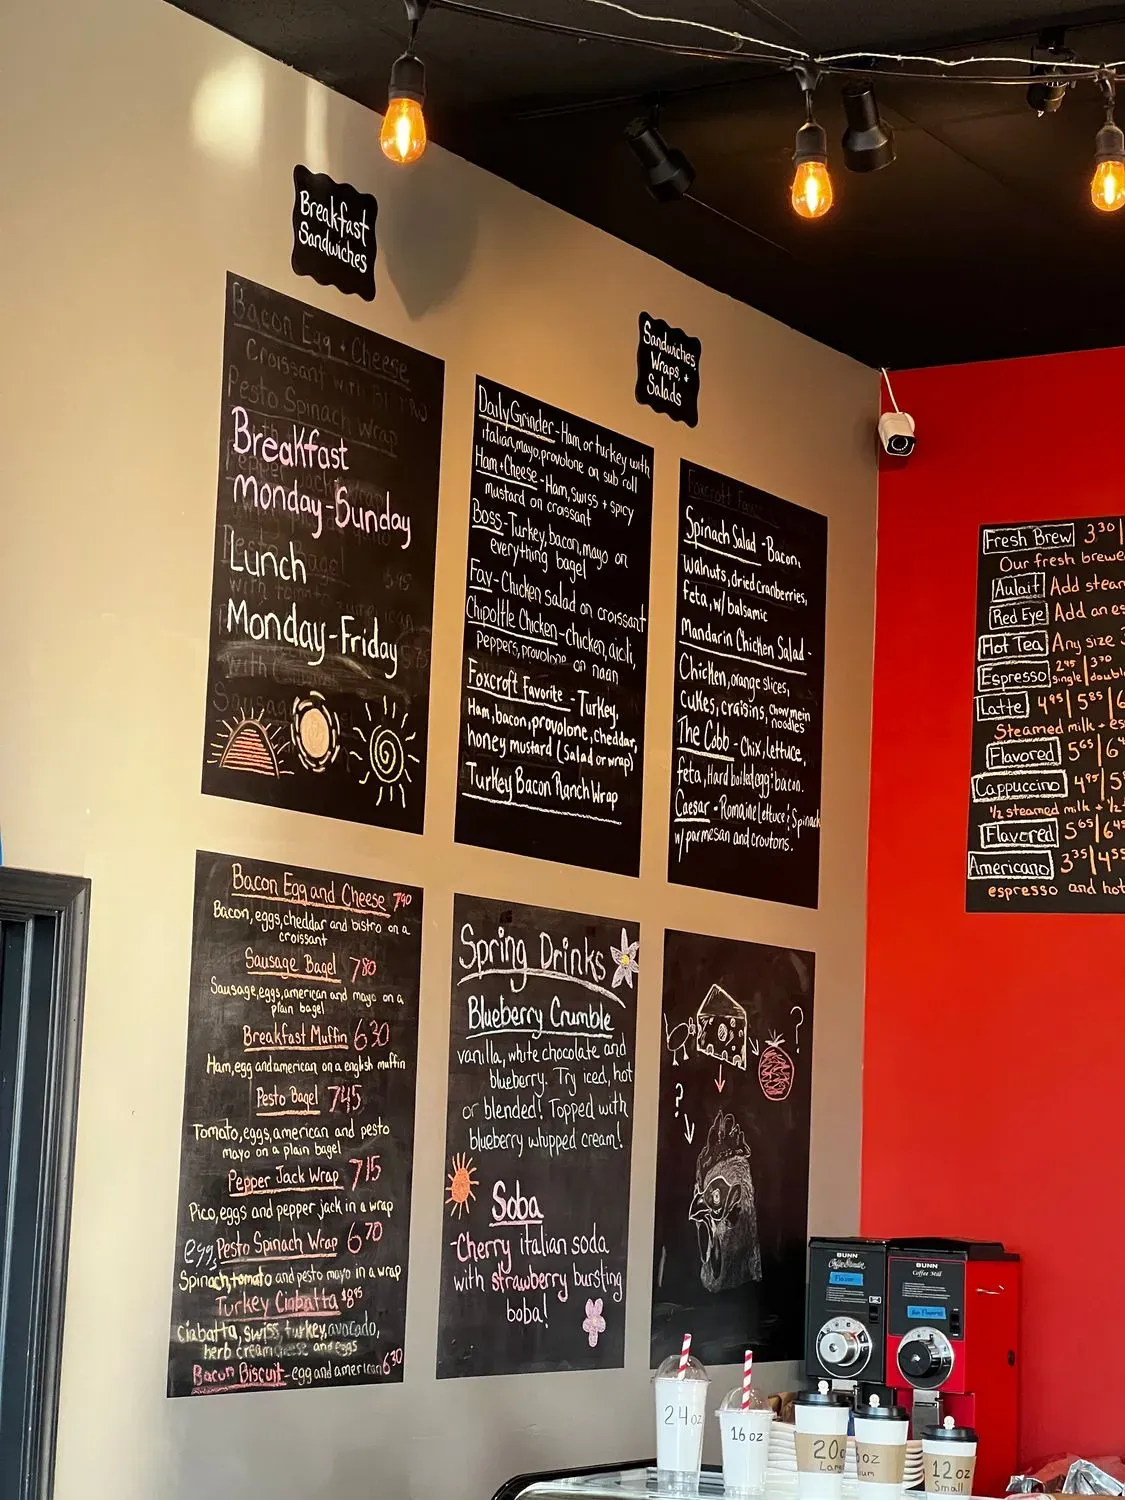 Breakfast
Sandwiches
Sandwiches,
Wraps, +
Salads
Bacon Egg + Cheese
Croissant with
Pesto Spinach Wrap
Breakfast
Monday-Sunday
Lunch
Monday-Friday
Daily Grinder - Ham or turkey with
italian, mayo, provolone on sub roll
Ham + Cheese - Ham, swiss + spicy
mustard on croissant
Boss - Turkey, bacon, mayo on
everything bagel
Fav - Chicken salad on croissant
Chipoltle Chicken - chicken, aioli,
Peppers, provolone on naan
Foxcroft Favorite - Turkey,
Ham, bacon, provolone, cheddar,
honey mustard (Salad or wrap)
Turkey Bacon Ranch Wrap
Spinach Salad - Bacon,
Walnuts, dried cranberries,
feta, w/ balsamic
Mandarin Chicken Salad -
Chicken, orange slices,
cukes, craisins, chow mein
noodles
The Cobb - Chix, lettuce,
feta, Hard boiled egg & bacon.
Caesar - Romaine lettuce & Spinach
w/ parmesan and croutons.
Bacon Egg and Cheese 7.90
Bacon, eggs, cheddar and bistro on a
croissant
Sausage Bagel 7.80
Sausage, eggs, american and mayo on a
plain bagel
Breakfast Muffin 6.30
Ham, egg and american on a english muffin
Pesto Bagel 7.45
Tomato, eggs, american and pesto
mayo on a plain bagel
Pepper Jack Wrap 7.15
Pico, eggs and pepper jack in a wrap
egg, Pesto Spinach Wrap 6.70
Spinach, tomato and pesto mayo in a wrap
Turkey Ciabatta $8.95
Ciabatta, swiss, turkey, avocado,
herb cream cheese and eggs
Bacon Biscuit - egg and american 6.30
Spring Drinks
Blueberry Crumble
vanilla, white chocolate and
blueberry. Try iced, hot
or blended! Topped with
blueberry whipped cream!
Soba
- Cherry italian soda
with strawberry bursting
boba!
?
?
Fresh Brew 3.30
Our fresh brewe
Aulait Add stea
Red Eye Add an es
Hot Tea Any size
Espresso 2.45 | 3.70
single | double
Latte 4.95 | 5.85 | 6
Steamed milk + es
Flavored 5.65 | 6
Cappuccino 4.95 | 5
1/2 steamed milk + 1/2
Flavored 5.65 | 6.45
Americano 3.35 | 4.55
espresso and hot
BUNN
BUNN
Coffee Mill
24 oz
16 oz
20o
Lar
oz
ium
12 oz
Small